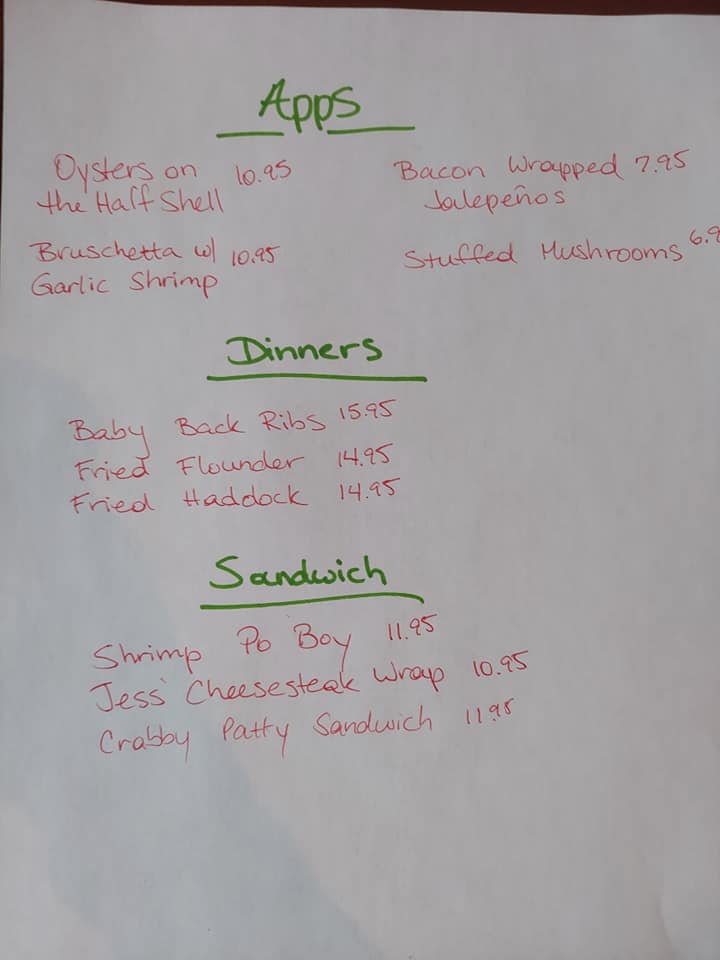 Apps
Oysters on 10.95
the Half Shell
Bacon Wrapped 7.95
Jalepeños
Bruschetta w/ 10.95
Garlic Shrimp
Stuffed Mushrooms
Dinners
Baby Back Ribs 15.95
Fried Flounder 14.95
Fried Haddock 14.95
Sandwich
Shrimp Po Boy 11.95
Jess' Cheesesteak Wrap 10.95
Crabby Patty Sandwich 11.95